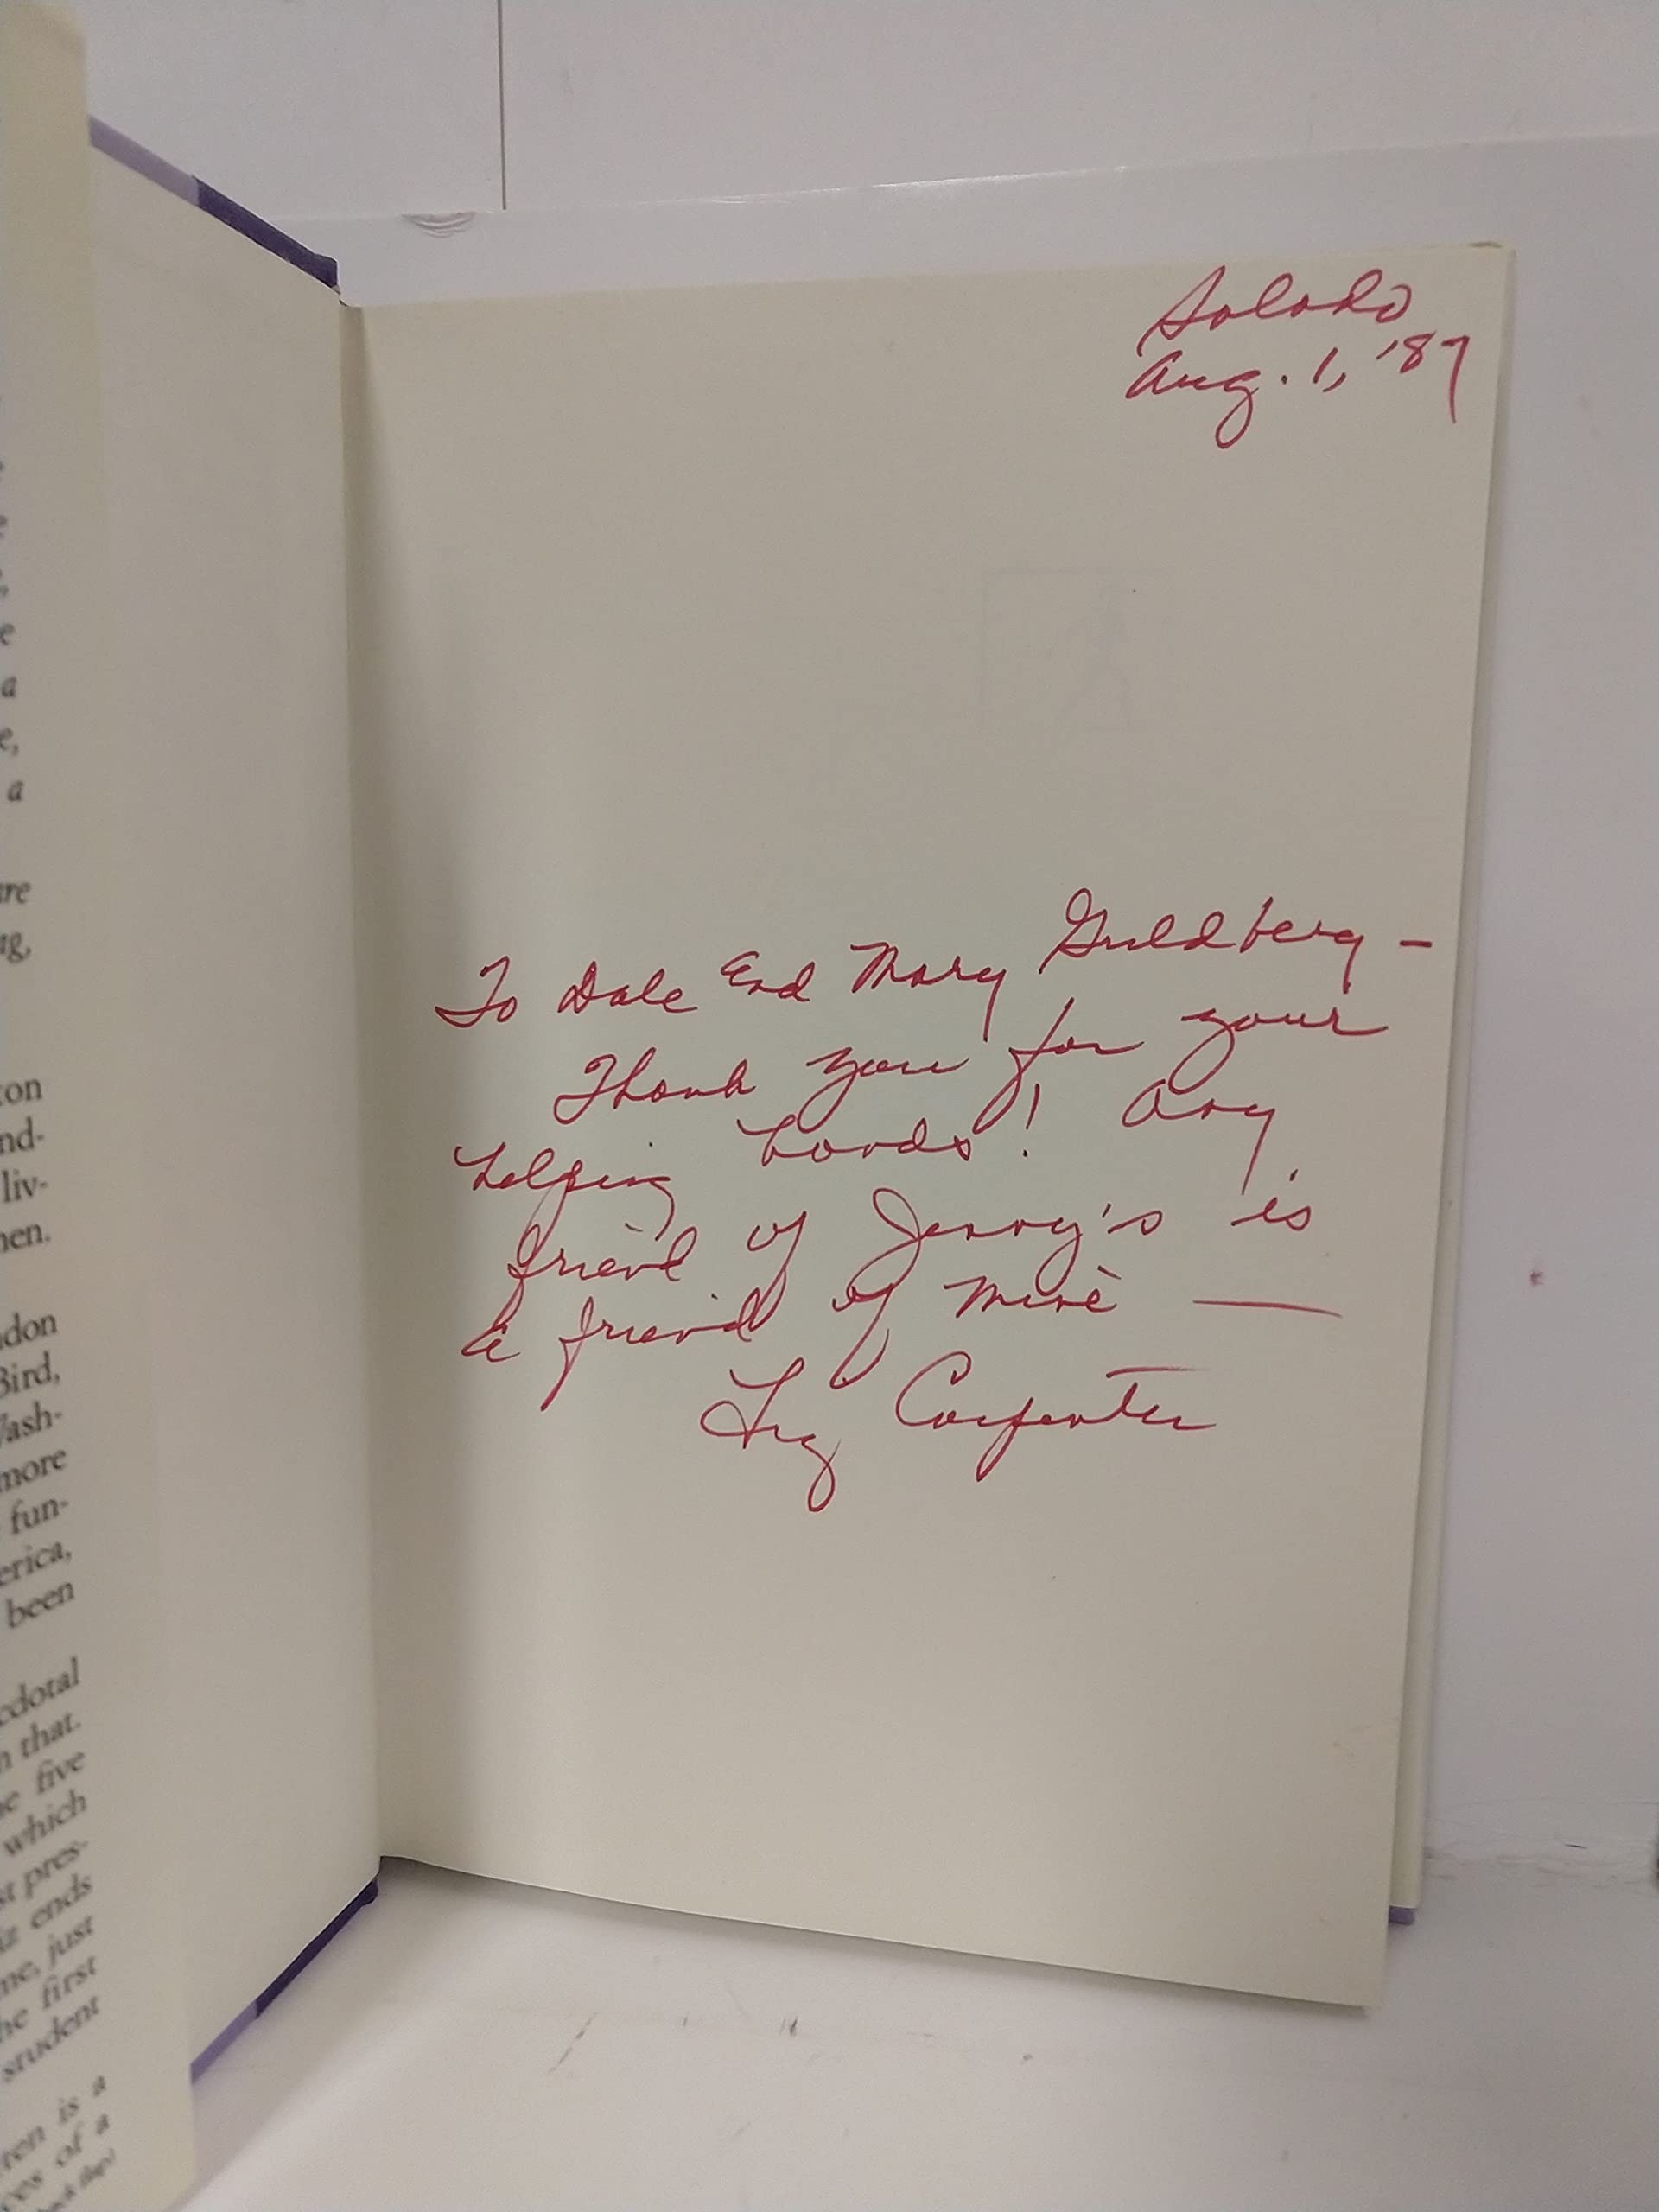 e
e
a
e,
a
are
ng,
ton
nd-
liv-
men.
ndon
Bird,
Wash-
more
fun-
erica,
been
cdotal
n that.
e five
which
st pres-
iz ends
me, just
he first
student
ren is a
ces of a
back flap)
Salado
Aug. 1, '87
To Dale and Mary Guldberg -
Thank you for your
helping hands! Any
friend of Jenny's is
a friend of mine —
Liz Carpenter